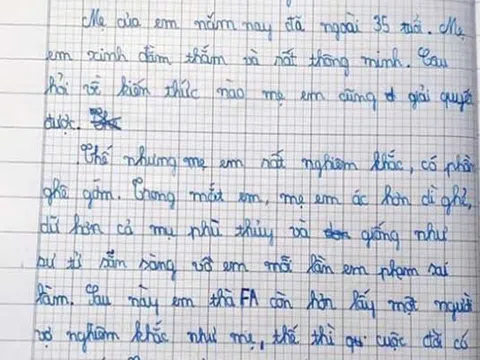 Mẹ của em năm nay đã ngoài 35 tuổi. Mẹ
em xinh đằm thắm và rất thông minh. Câu
hỏi về kiến thức nào mẹ em cũng giải quyết
được.
Thế nhưng mẹ em rất nghiêm khắc, có phần
ghê gớm. Trong mắt em, mẹ em ác hơn dì ghẻ,
dữ hơn cả mụ phù thủy và giống như
sư tử sẵn sàng vồ em mỗi lần em phạm sai
lầm. Sau này em thà FA còn hơn lấy một người
vợ nghiêm khắc như mẹ, thế thì cuộc đời có